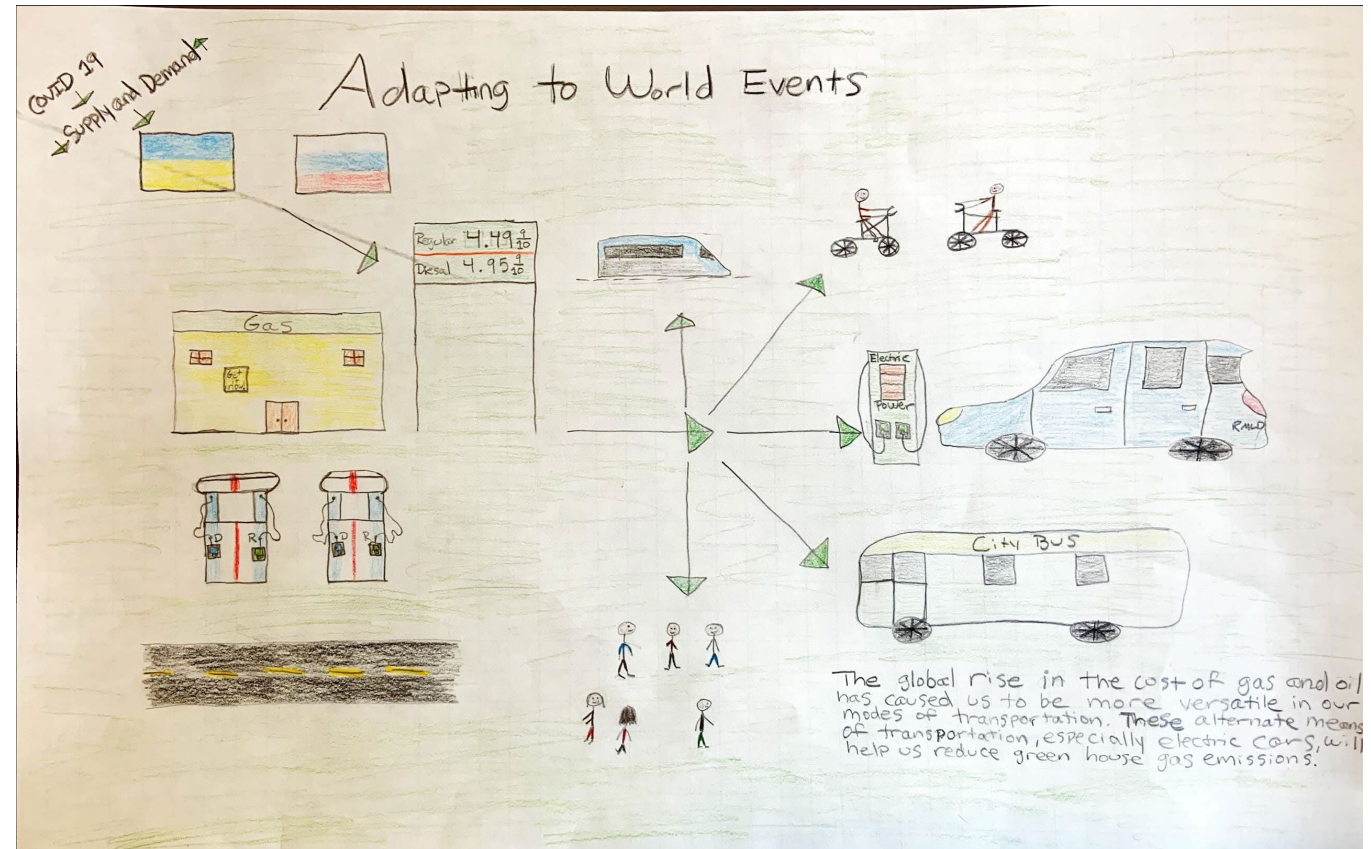 COVID 19
Supply and Demand
Adapting to World Events
Regular 4.49 9/10
Diesal 4.95 9/10
Gas
Get it now
Electric
Power
RMLD
D R
D R
City Bus
The global rise in the cost of gas and oil
has caused us to be more versatile in our
modes of transportation. These alternate means
of transportation, especially electric cars, will
help us reduce green house gas emissions.